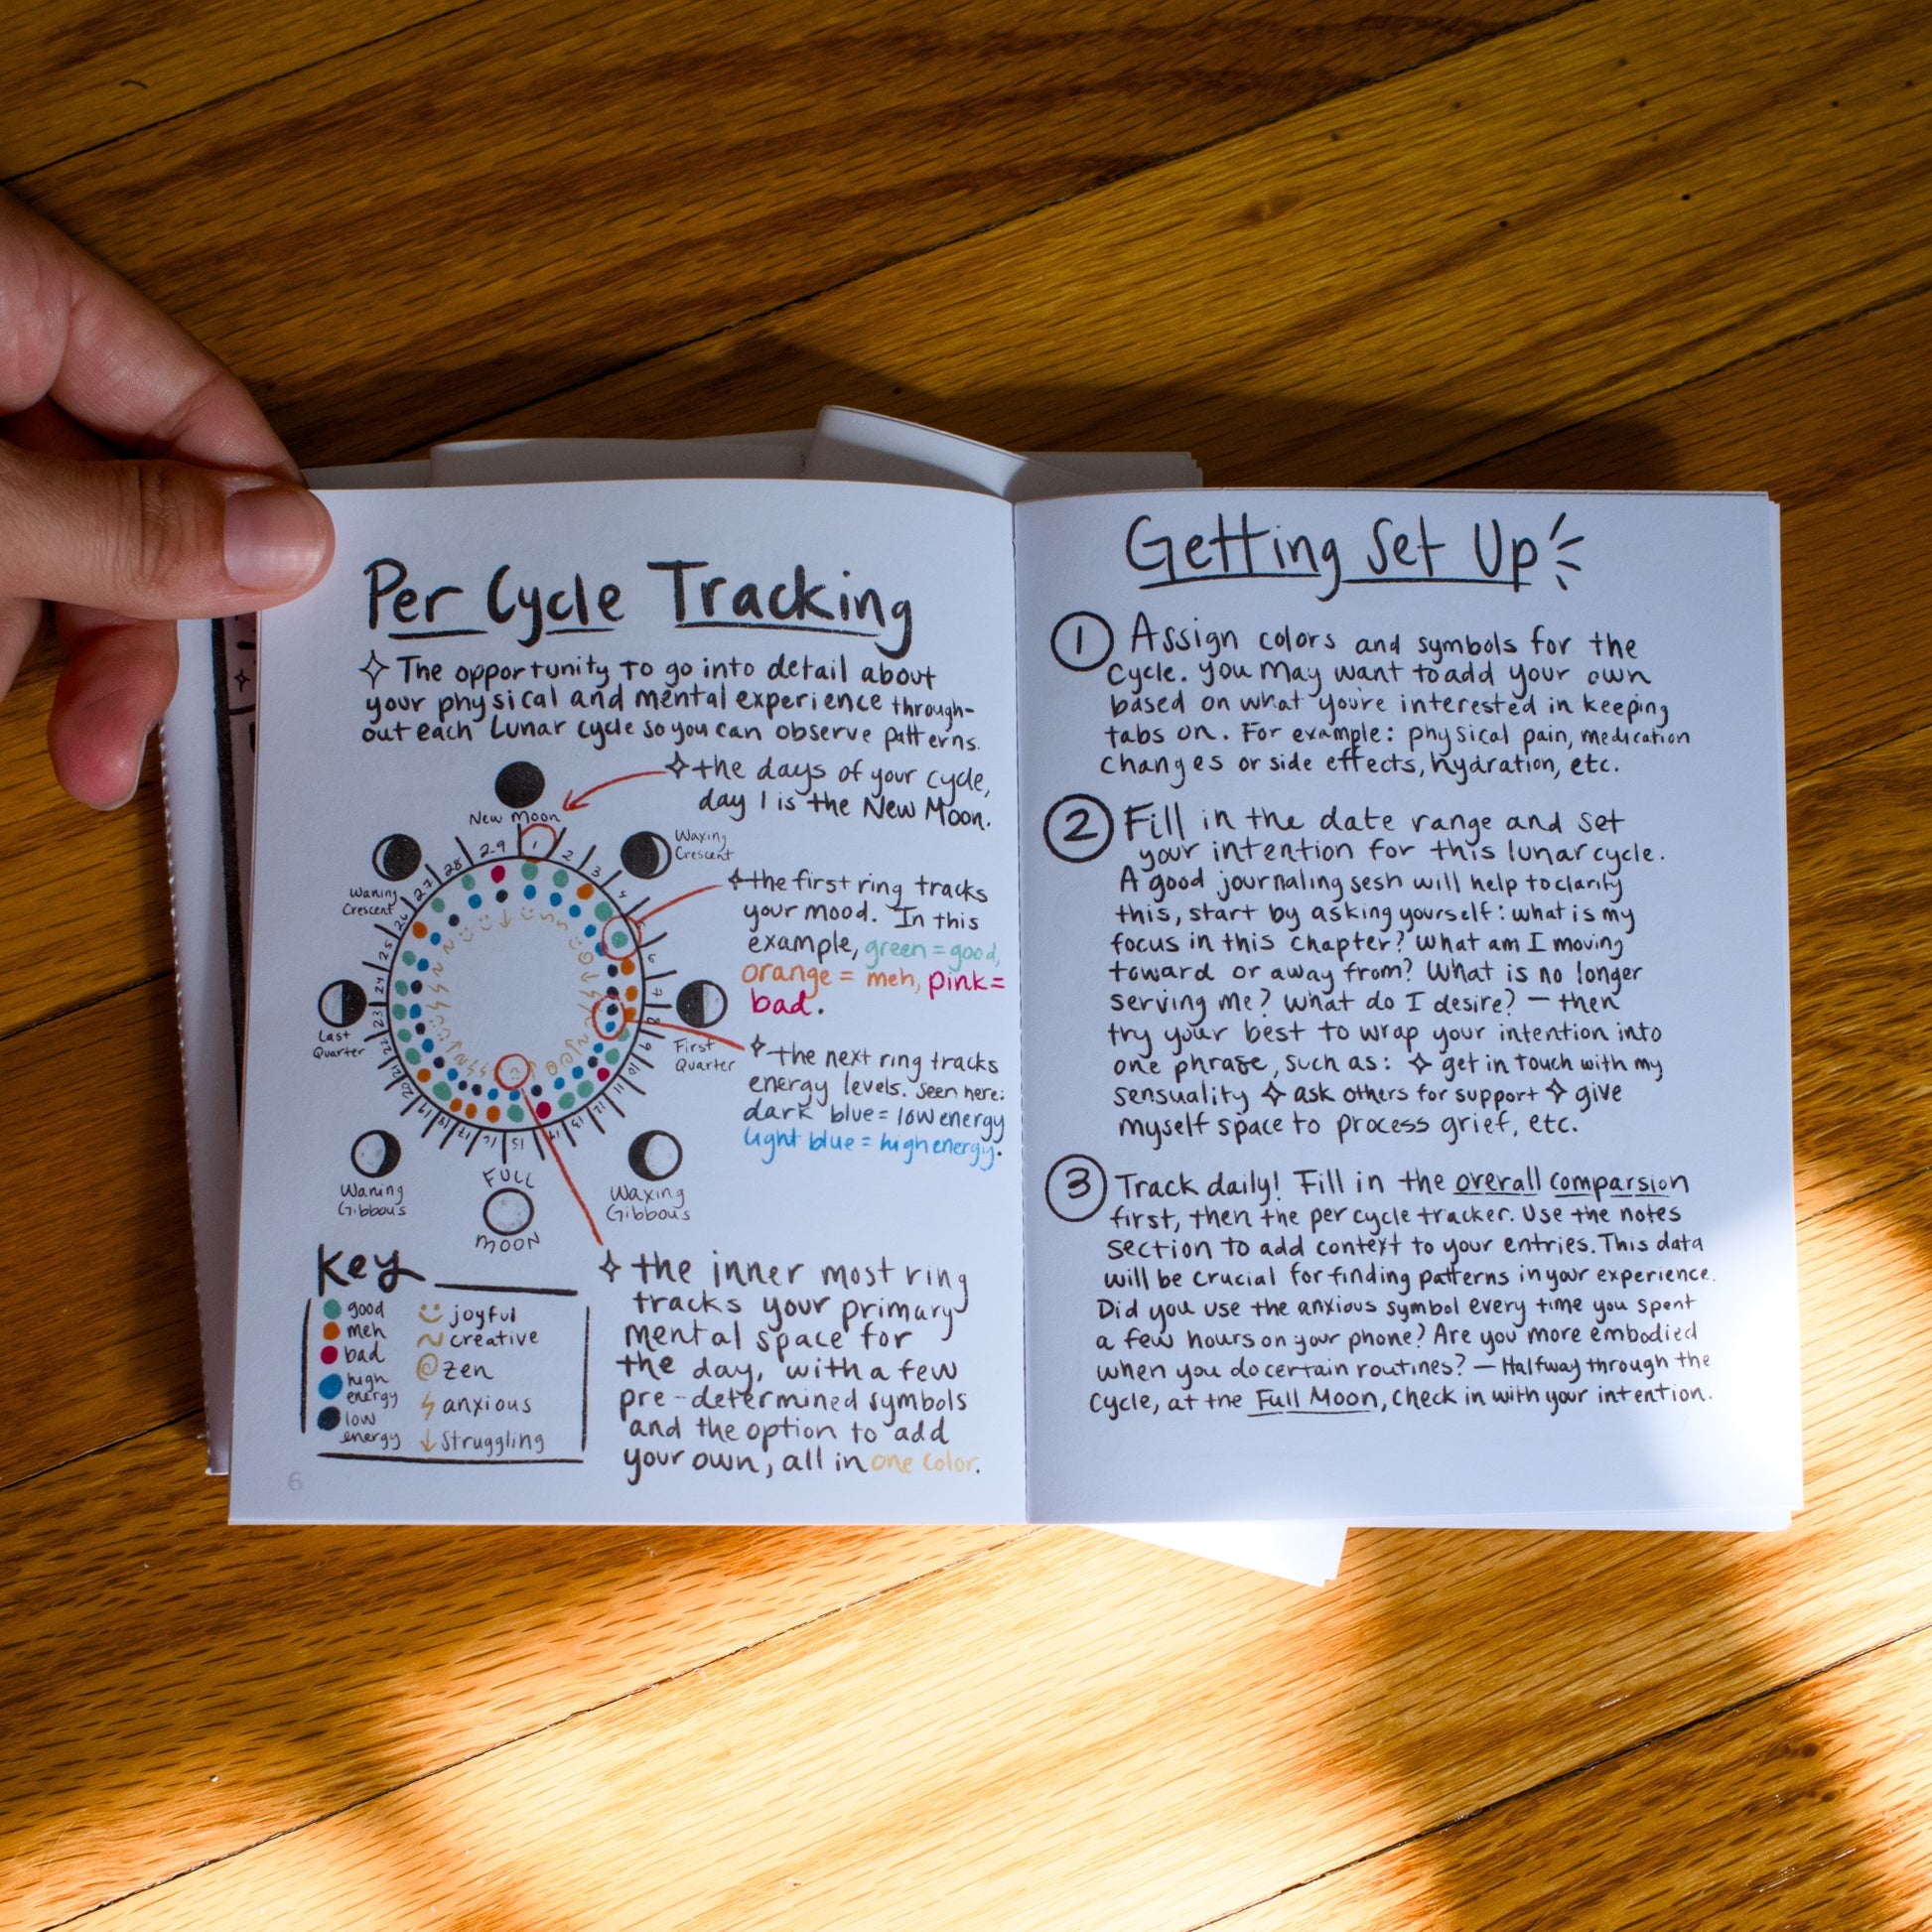 Per Cycle Tracking
✧ The opportunity to go into detail about
your physical and mental experience through-
out each Lunar cycle so you can observe patterns.
✧ the days of your cycle,
day 1 is the New Moon.
New Moon
Waxing
Crescent
Waning
Crescent
29
1
2
3
4
28
27
26
25
24
23
22
21
20
19
17
16
15
14
13
12
11
10
9
8
7
6
✧ the first ring tracks
your mood. In this
example, green = good,
orange = meh, pink =
bad.
Last
Quarter
First
Quarter
✧ the next ring tracks
energy levels. Seen here:
dark blue = low energy
light blue = high energy.
Waning
Gibbous
FULL
MOON
Waxing
Gibbous
Key
good
meh
bad
high
energy
low
energy
joyful
creative
zen
anxious
struggling
✧ the inner most ring
tracks your primary
mental space for
the day, with a few
pre-determined symbols
and the option to add
your own, all in one color.
6
Getting Set Up
1 Assign colors and symbols for the
cycle. you may want to add your own
based on what you're interested in keeping
tabs on. For example: physical pain, medication
changes or side effects, hydration, etc.
2 Fill in the date range and set
your intention for this lunar cycle.
A good journaling sesh will help to clarify
this, start by asking yourself: what is my
focus in this chapter? What am I moving
toward or away from? What is no longer
serving me? What do I desire? — then
try your best to wrap your intention into
one phrase, such as: ✧ get in touch with my
sensuality ✧ ask others for support ✧ give
myself space to process grief, etc.
3 Track daily! Fill in the overall comparsion
first, then the per cycle tracker. Use the notes
section to add context to your entries. This data
will be crucial for finding patterns in your experience.
Did you use the anxious symbol every time you spent
a few hours on your phone? Are you more embodied
when you do certain routines? — Halfway through the
cycle, at the Full Moon, check in with your intention.